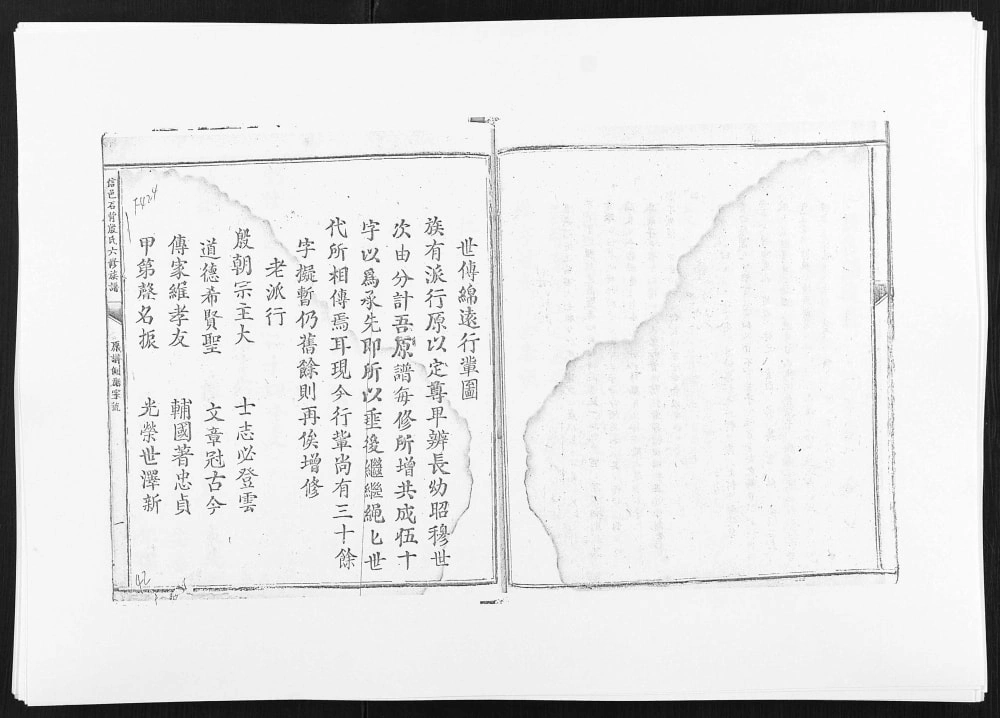 世傳綿遠行軰圖
族有派行原以定尊卑辨長幼昭穆世
次由分計吾原譜每修所增共成伍十
字以爲承先即所以垂後繼繼繩匕世
代所相傳焉耳現今行軰尚有三十餘
字擬暫仍舊餘則再俟增修
老派行
殷朝宗主大　士志必登雲
道德希賢聖　文章冠古今
傳家維孝友　輔國著忠貞
甲第聲名振　光榮世澤新
信邑石背嚴氏六修族譜
一
7424
92